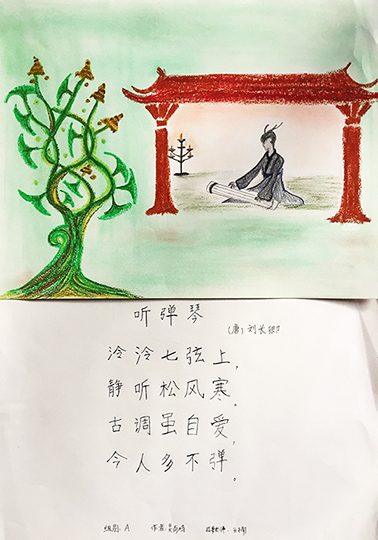 听弹琴
(唐) 刘长卿
泠泠七弦上,
静听松风寒.
古调虽自爱,
今人多不弹。
组别: A 作者: